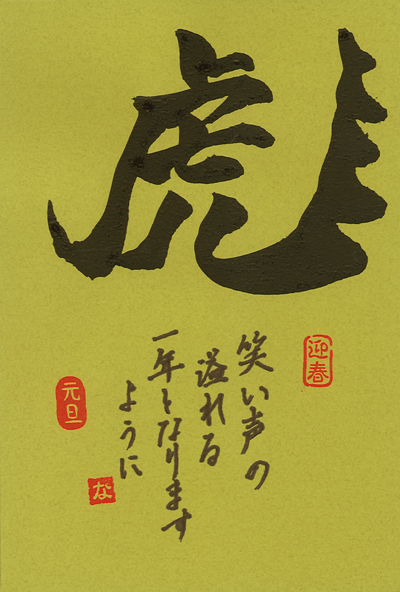 虎
迎春
笑い声の
溢れる
一年となります
ように
元旦
な